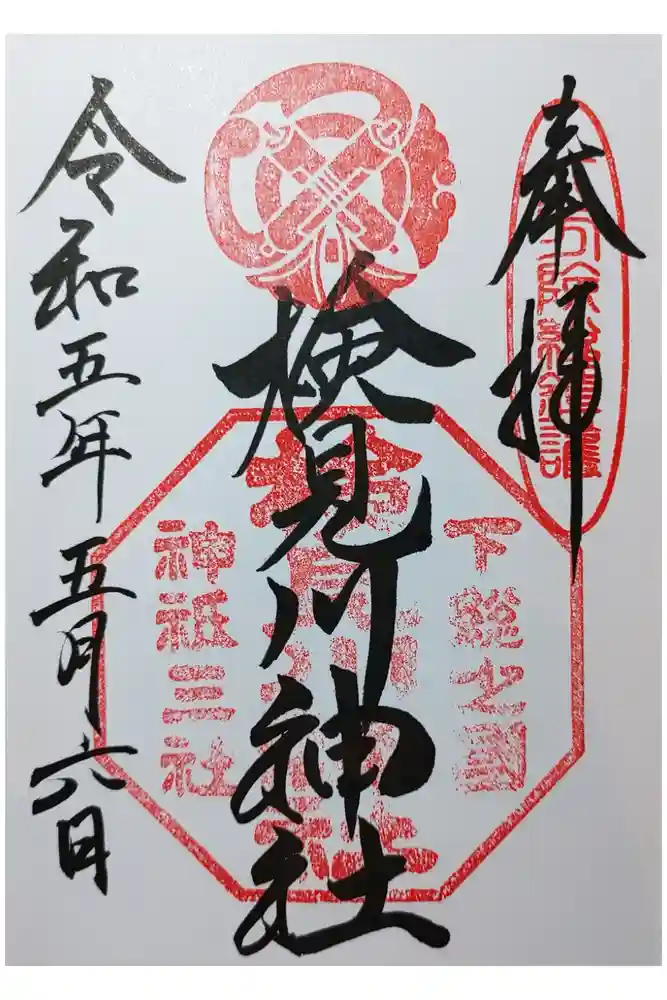 奉拝
下総之国
検見川神社
検見川神社
神祇三社
令和五年五月六日